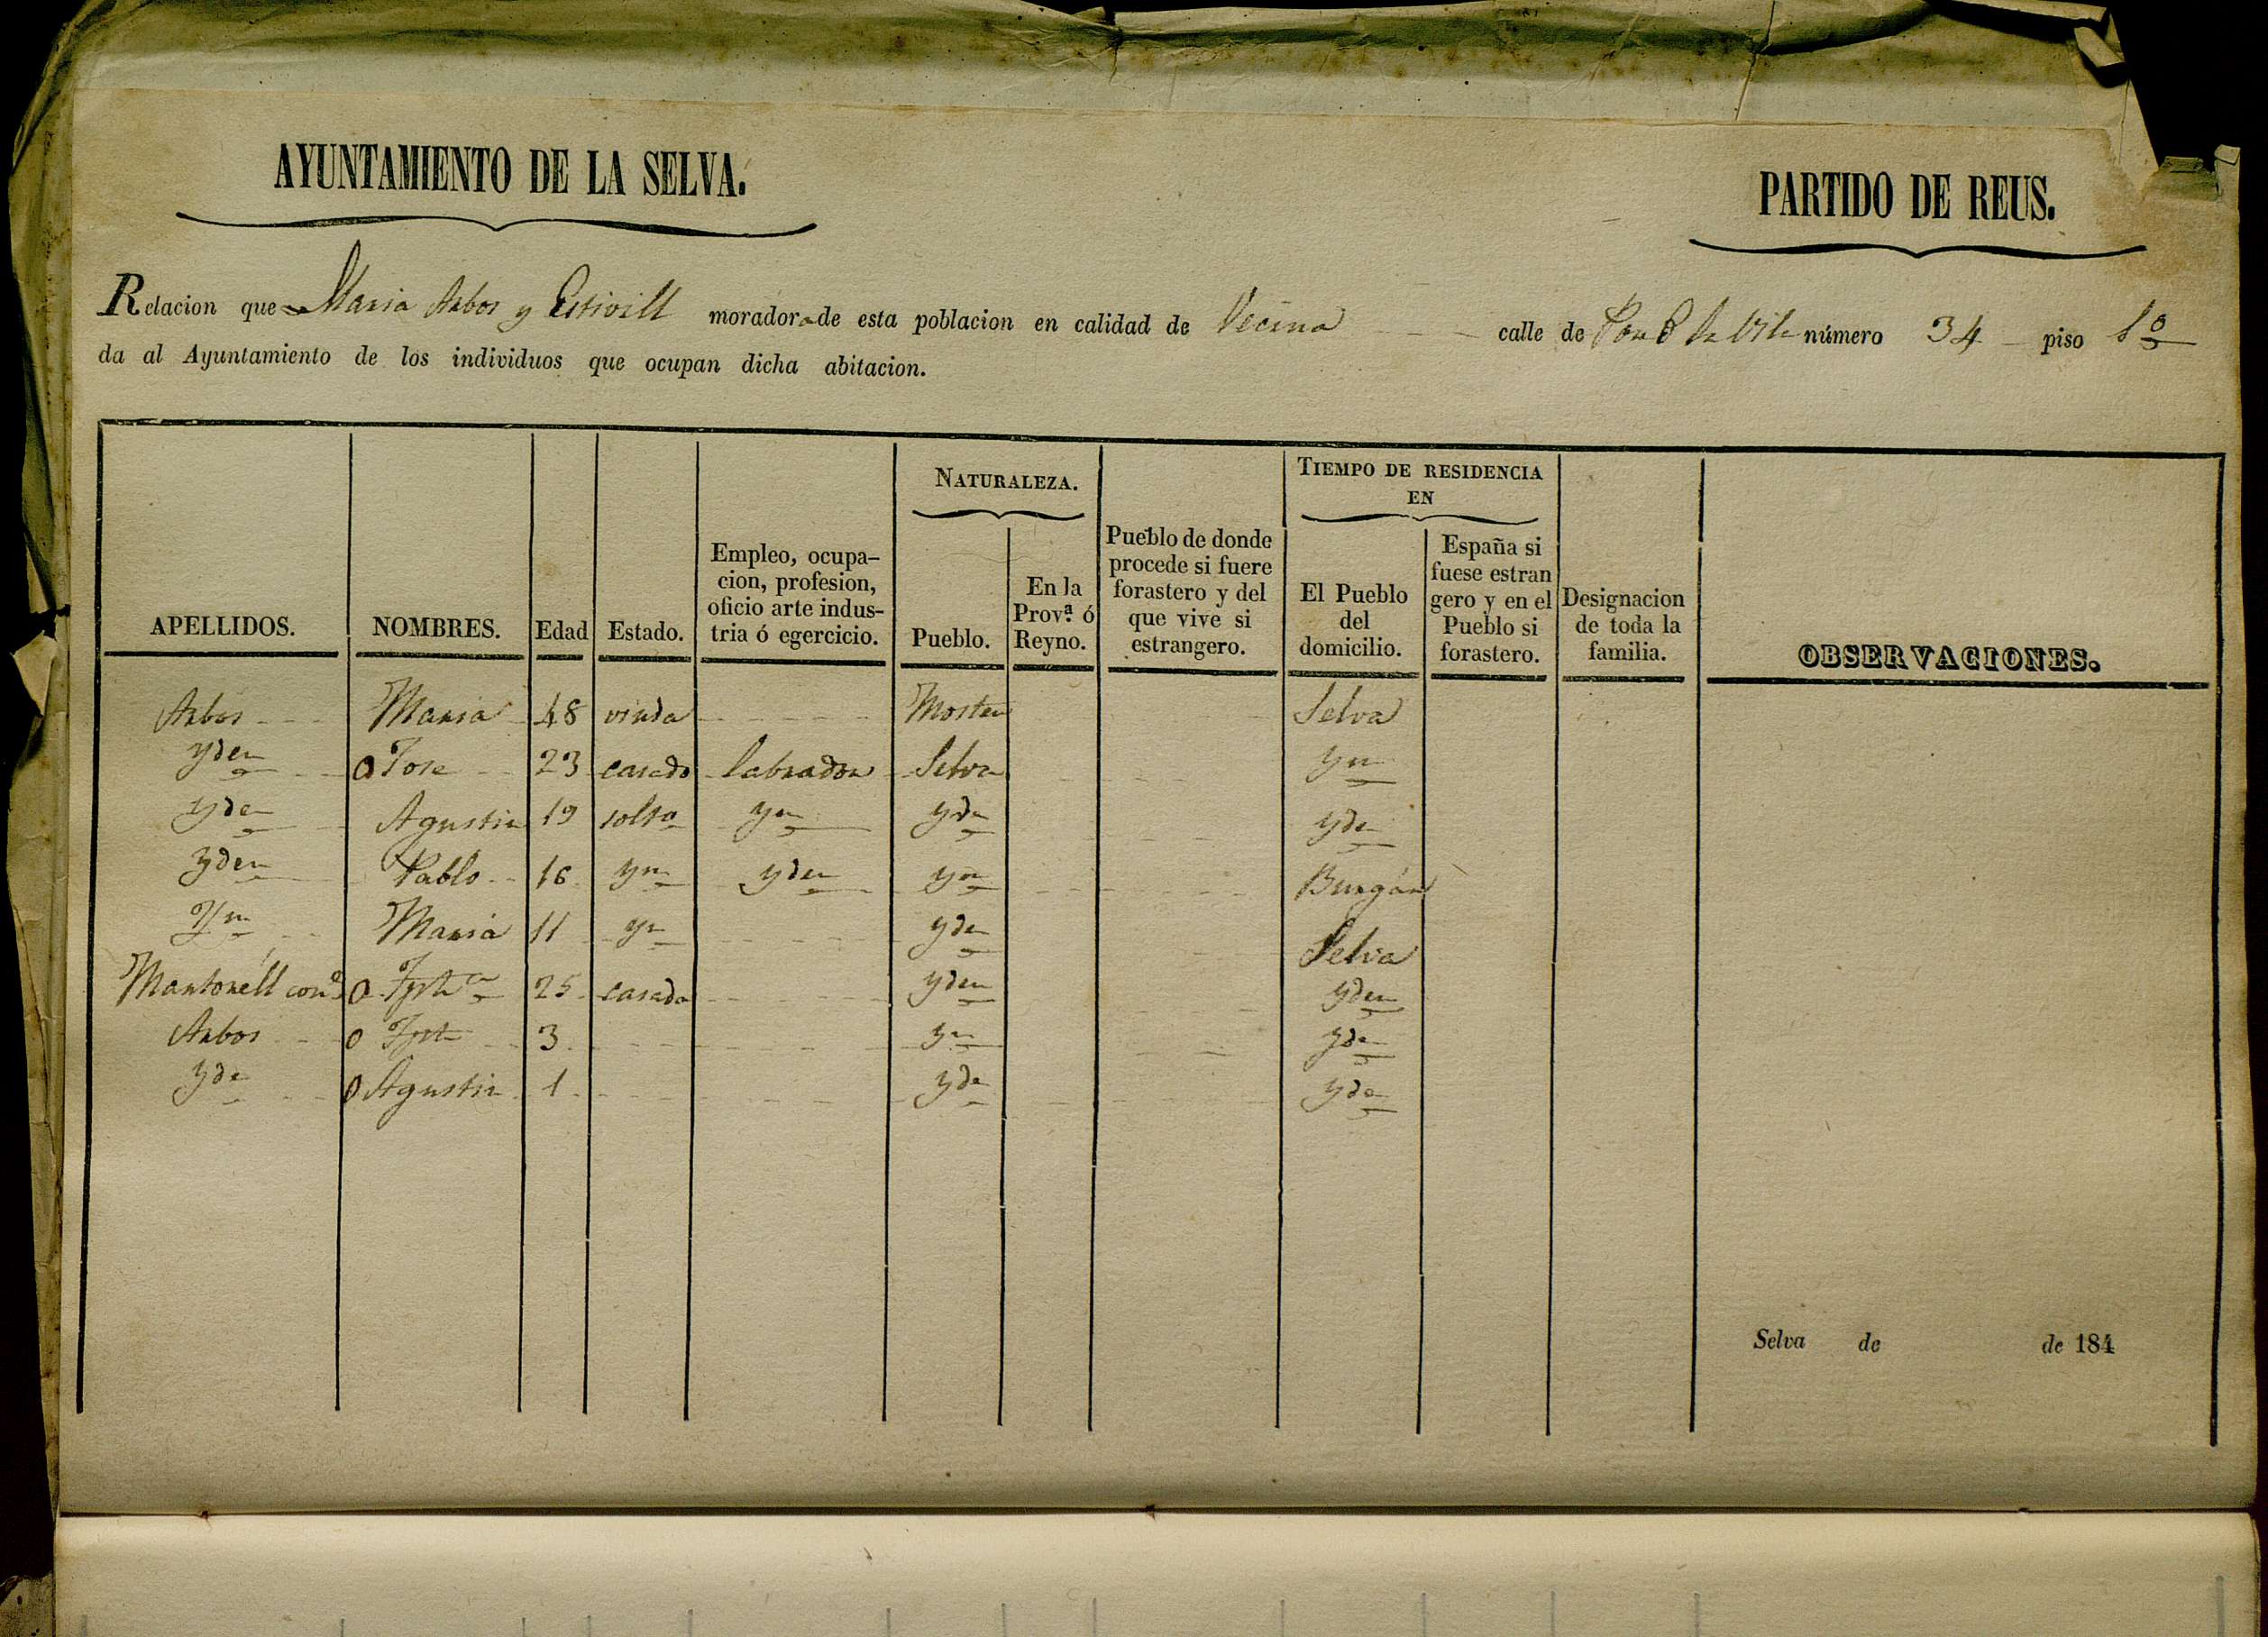 AYUNTAMIENTO DE LA SELVA.
PARTIDO DE REUS.
Relacion que Maria Arbos y Estivill moradora de esta poblacion en calidad de Vecina calle de número 34 piso 1º
da al Ayuntamiento de los individuos que ocupan dicha abitacion.
APELLIDOS. NOMBRES. Edad Estado. Empleo, ocupa-cion, profesion, oficio arte indus-tria ó egercicio. NATURALEZA. Pueblo. En la Prov.ª ó Reyno. Pueblo de donde procede si fuere forastero y del que vive si estrangero. TIEMPO DE RESIDENCIA EN El Pueblo del domicilio. España si fuese estran gero y en el Pueblo si forastero. Designacion de toda la familia. OBSERVACIONES.
Arbos Maria 48 viuda Selva
yden O Jose 23 casado labrador Selva yn
yden Agustin 19 solto yn yden yden
yden Pablo 16 yn yden yn
Yn Maria 11 yn yden Selva
Martorell O 25 casada yden yden
Arbos O 3 yn yden
yde O Agustin 1 yde yde
Selva de de 184